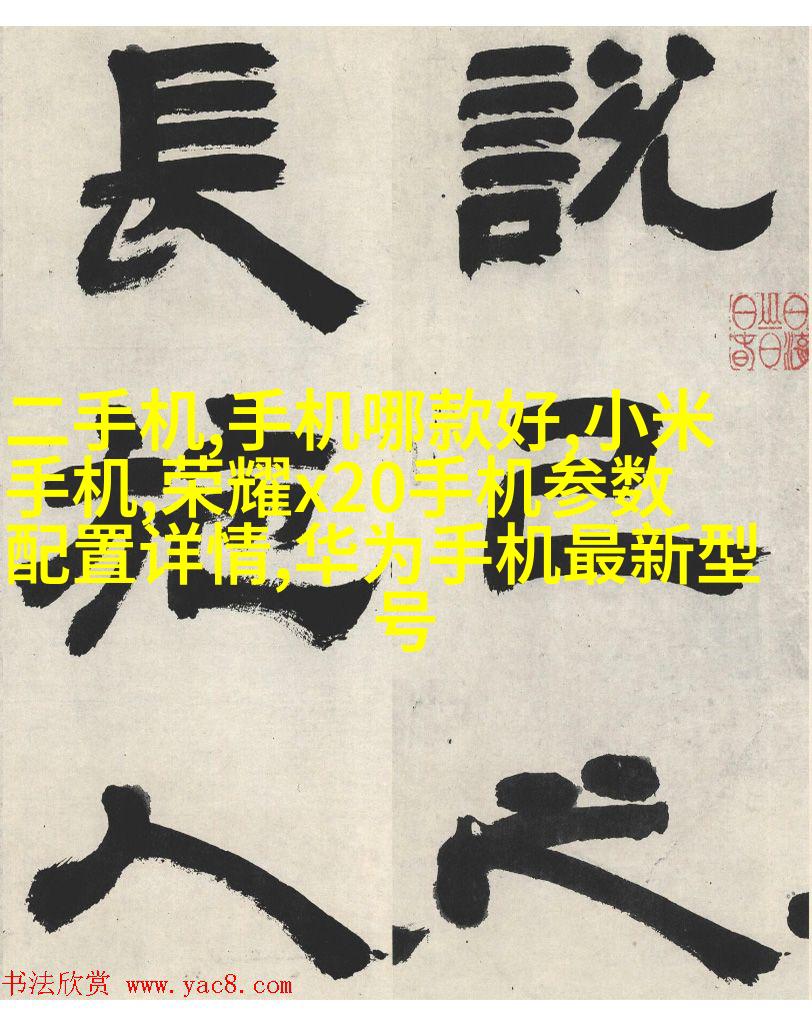 說己之
長施人
二手机,手机哪款好,小米
手机,荣耀x20手机参数
配置详情,华为手机最新型
号
书法欣赏 www.yac8.com